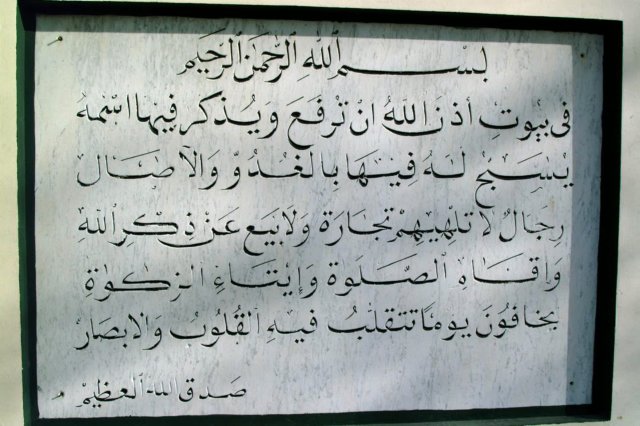 بسم الله الرحمن الرحيم
فى بيوت أذن الله ان ترفع ويذكر فيها اسمه
يسبح له فيها بالغدو والآصال
رجال لا تلهيهم تجارة ولا بيع عن ذكر الله
واقاه الصلوة وإيتاء الزكوٰة
يخافون يوما تتقلب فيه القلوب والابصار
صدق الله العظيم